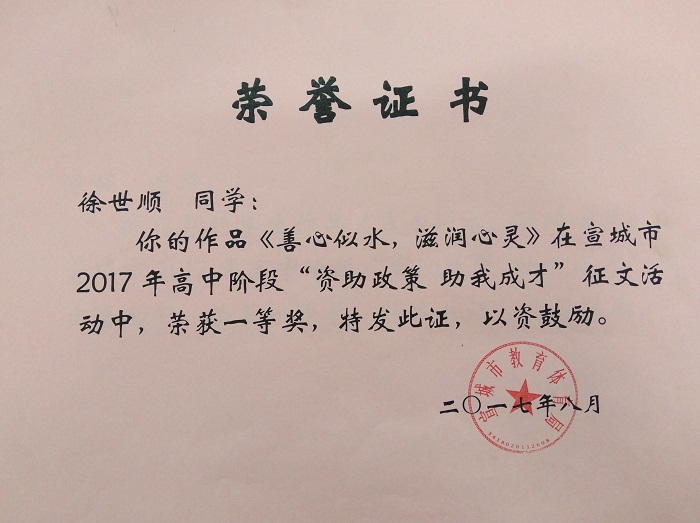 荣誉证书
徐世顺 同学：
你的作品《善心似水，滋润心灵》在宣城市
2017年高中阶段“资助政策 助我成才”征文活
动中，荣获一等奖，特发此证，以资鼓励。
宣城市教育体育局
二〇一七年八月